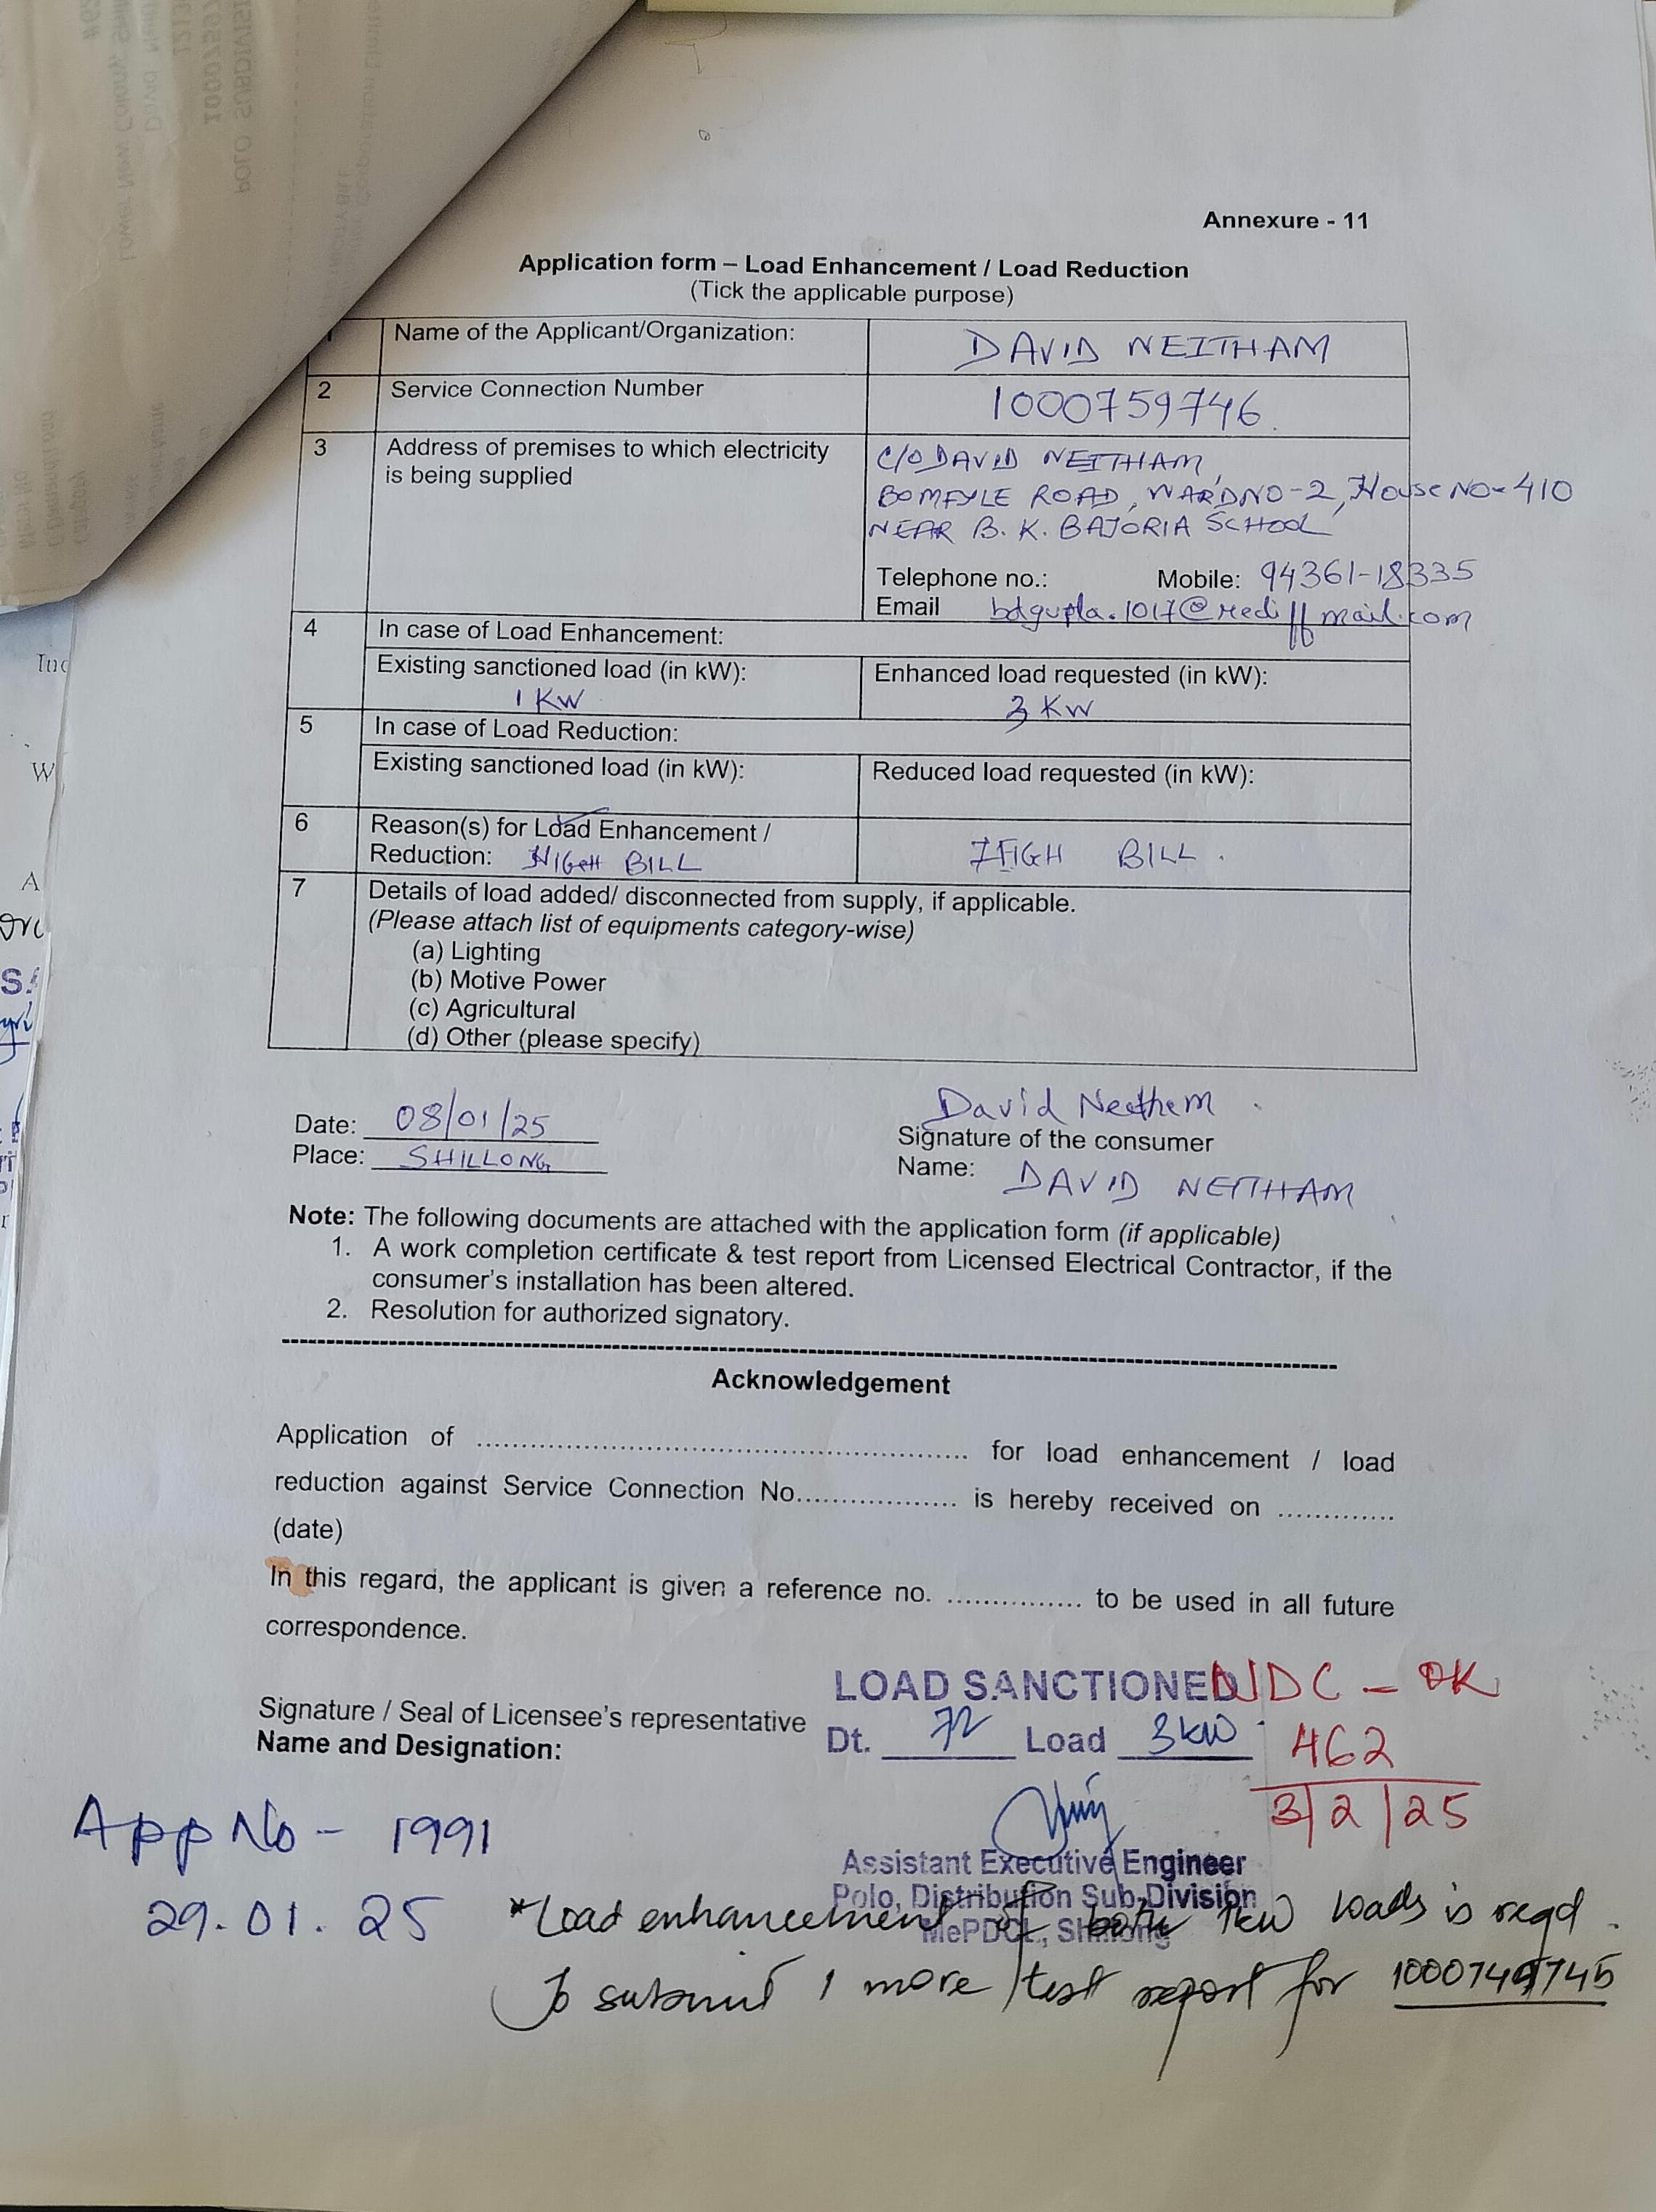 Annexure - 11
Application form – Load Enhancement / Load Reduction
(Tick the applicable purpose)
Name of the Applicant/Organization: DAVID NEITHAM
2 Service Connection Number 1000759746
3 Address of premises to which electricity is being supplied
C/O DAVID NEITHAM,
BOMFYLE ROAD, WARD NO-2, House NO-410
NEAR B. K. BAJORIA SCHOOL
Telephone no.: Mobile: 94361-18335
Email bdgupta.1017@rediffmail.com
4 In case of Load Enhancement:
Existing sanctioned load (in kW): Enhanced load requested (in kW):
1 KW 3 KW
5 In case of Load Reduction:
Existing sanctioned load (in kW): Reduced load requested (in kW):
6 Reason(s) for Load Enhancement /
Reduction: HIGH BILL HIGH BILL.
7 Details of load added/ disconnected from supply, if applicable.
(Please attach list of equipments category-wise)
(a) Lighting
(b) Motive Power
(c) Agricultural
(d) Other (please specify)
David Neetham
Date: 08/01/25 Signature of the consumer
Place: SHILLONG Name: DAVID NEITHAM
Note: The following documents are attached with the application form (if applicable)
1. A work completion certificate & test report from Licensed Electrical Contractor, if the
consumer's installation has been altered.
2. Resolution for authorized signatory.
Acknowledgement
Application of .................... for load enhancement / load
reduction against Service Connection No.................. is hereby received on .............
(date)
In this regard, the applicant is given a reference no. ............... to be used in all future
correspondence.
LOAD SANCTIONED NDC - OK
Signature / Seal of Licensee's representative Dt. Load 3kW 462
Name and Designation:
3/2/25
App No - 1991
Assistant Executive Engineer
Polo, Distribution Sub-Division
MePDCL, Shillong
29.01.25 *Load enhancement of both 1kW loads is reqd.
To submit 1 more test report for